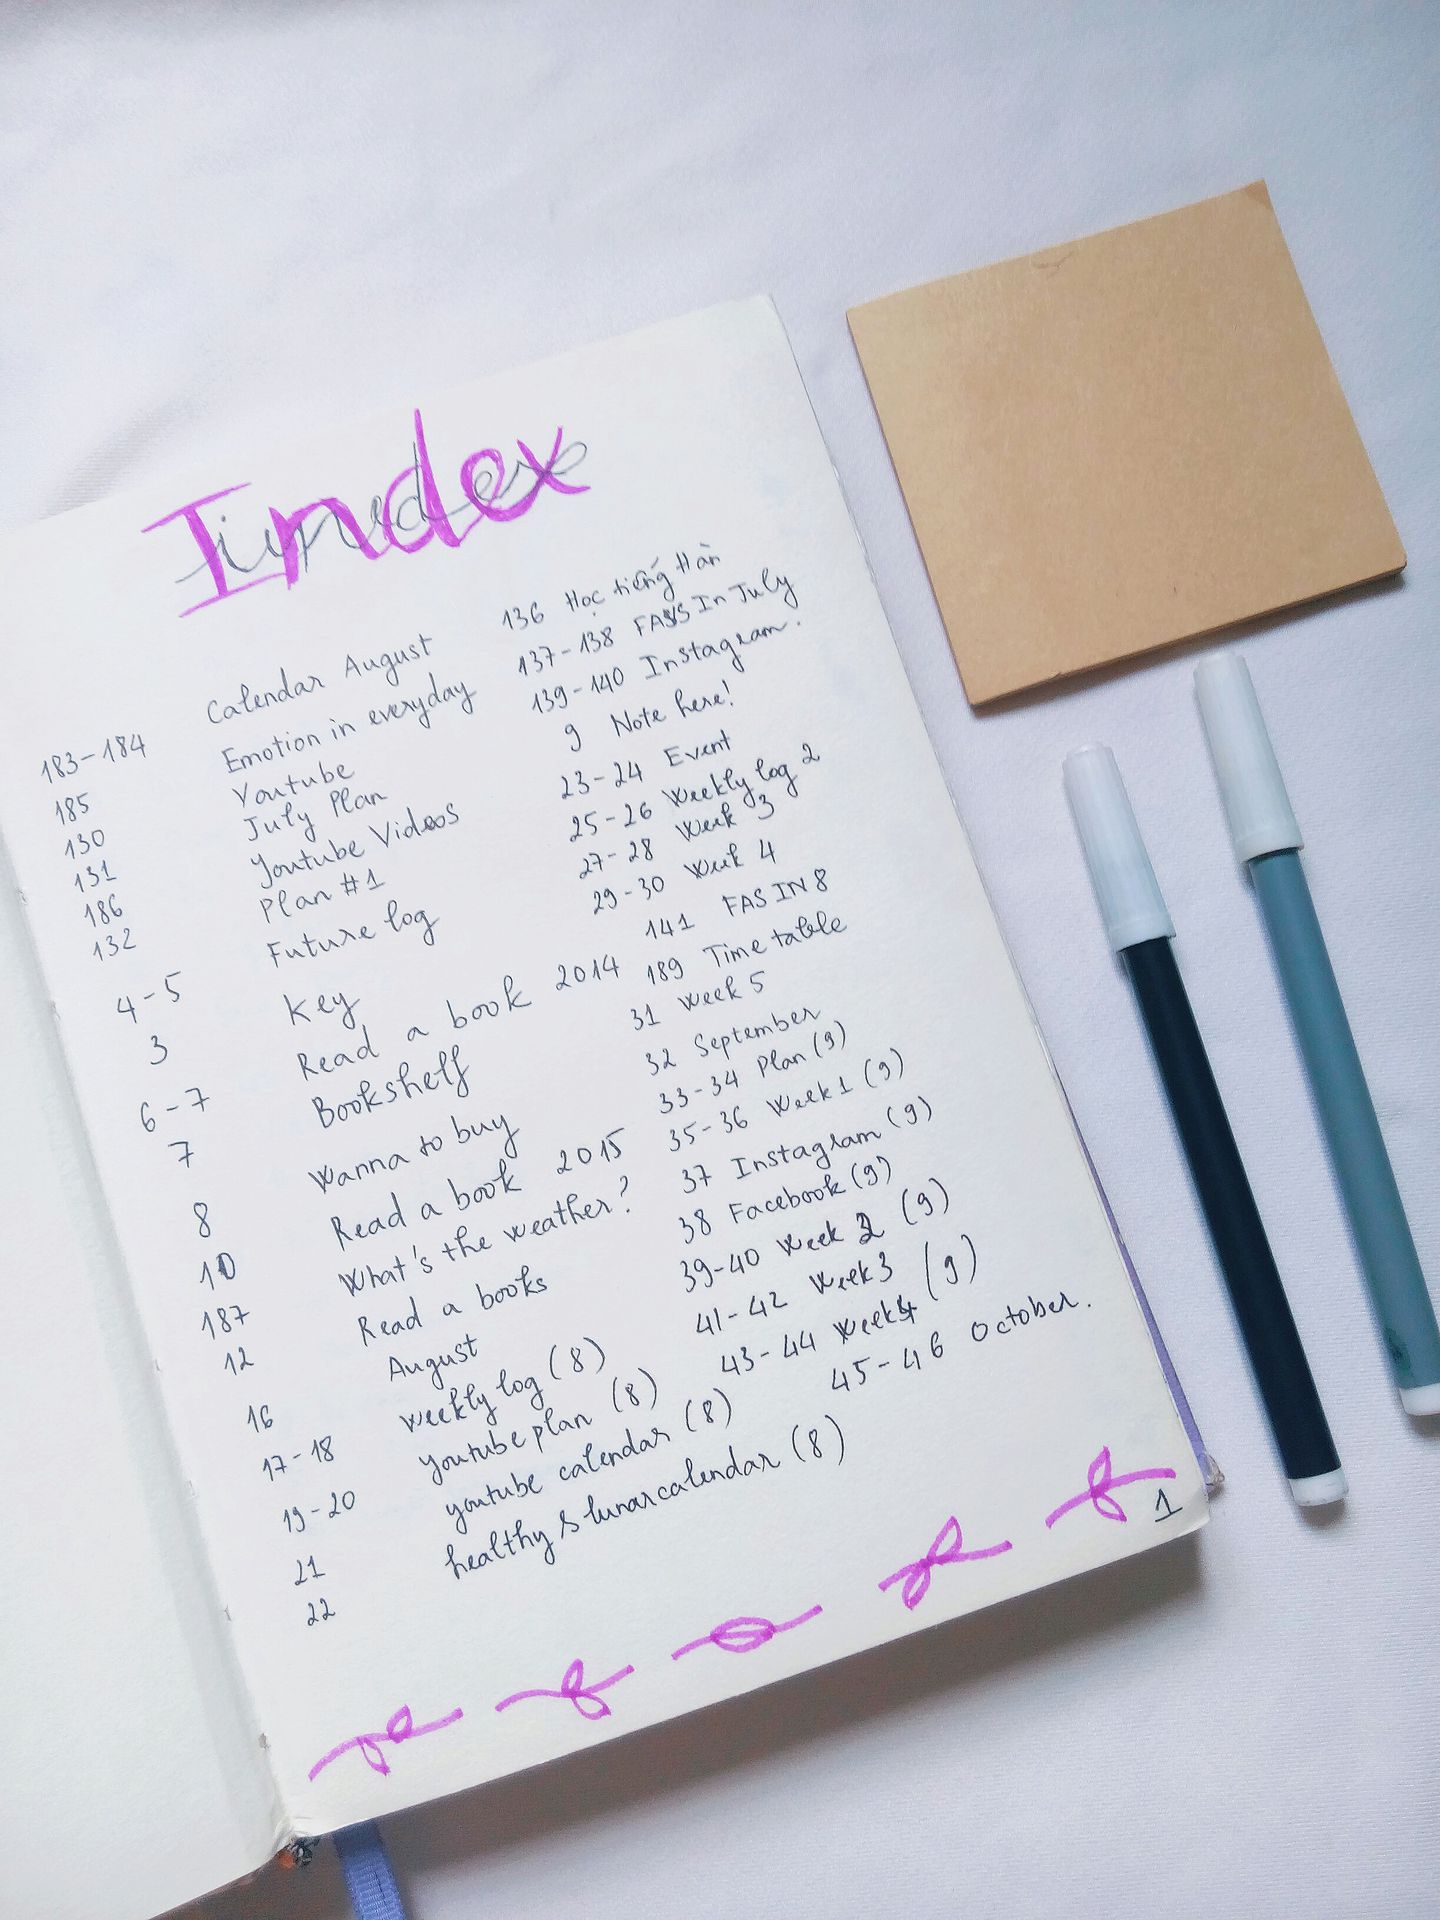 Index
183-184 Calendar August
185 Emotion in everyday
130 Youtube
131 July Plan
186 Youtube Videos
132 Plan #1
4-5 Future log
3 Key
6-7 Read a book 2014
7 Bookshelf
8 Wanna to buy
10 Read a book 2015
187 What's the weather?
12 Read a books
16 August
17-18 Weekly log (8)
19-20 youtube plan (8)
21 youtube calendar (8)
22 healthy & lunar calendar (8)
136 Học tiếng Hàn
137-138 FAS In July
139-140 Instagram.
9 Note here!
23-24 Event
25-26 Weekly log 2
27-28 Week 3
29-30 Week 4
141 FAS IN 8
189 Time table
31 Week 5
32 September
33-34 Plan (9)
35-36 Week 1 (9)
37 Instagram (9)
38 Facebook (9)
39-40 Week 2 (9)
41-42 Week 3 (9)
43-44 Week 4
45-46 October.
1